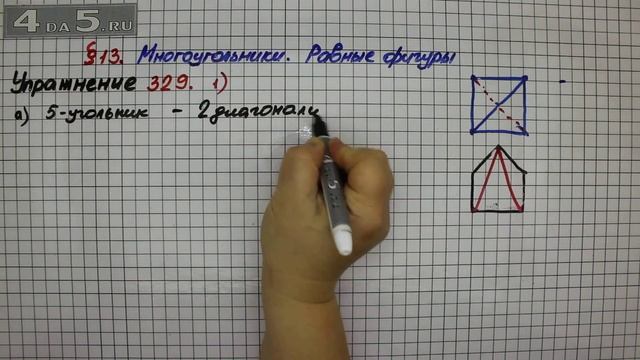 4 DA 5.RU
§13. Многоугольники. Равные фигуры
Упражнение 329. 1)
а) 5-угольник - 2 диагонали